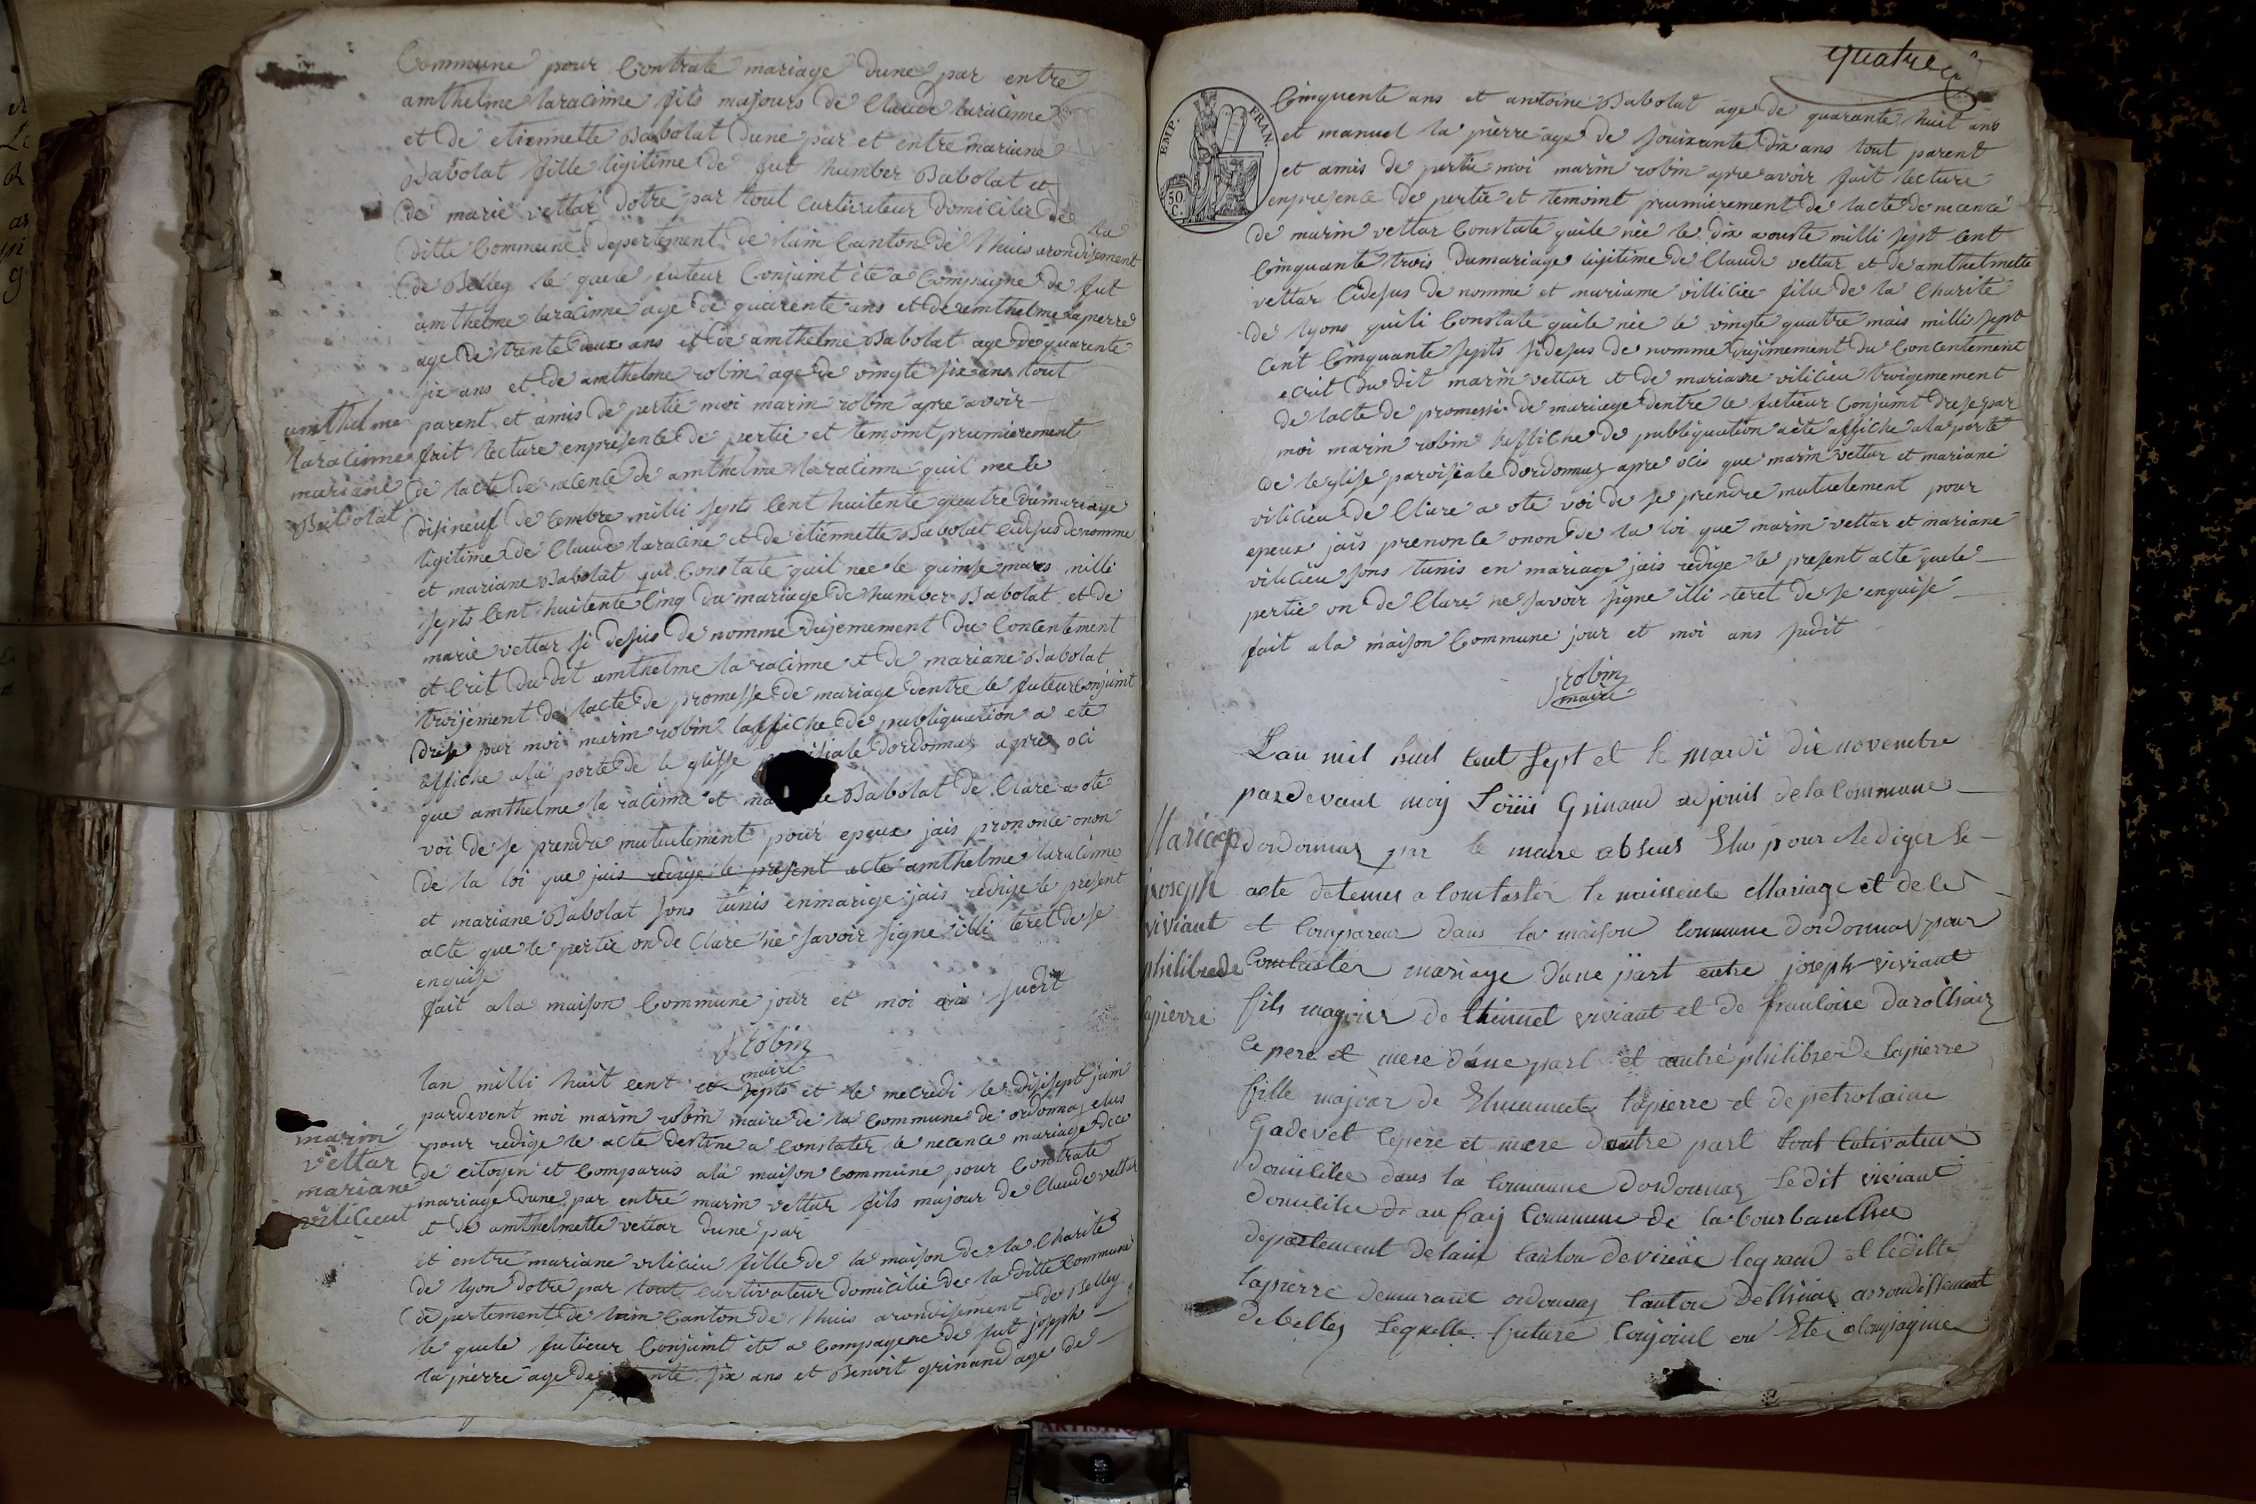 Commune pour Contrate mariage dune par entre
amthelme laracinne fils majours de Claude laracinne
et de etiennette Babolat dune par et entre mariane
Babolat fille ligitime de fut humber Babolat et
de marie vettar dotre par tout curtivateur domicilie de la
ditte Commune depertement de lain Canton de lhuis arondisement
de Belley le quele futeur Conjuint ete a Compaigne de fut
amthelme laracinne age de quarente ans et de amthelme lapierre
age de trente deux ans et de amthelme Babolat age de quarente
six ans et de amthelme robin age de vingte six ans tout
parent et amis de pertie moi marin robin apre avoir
fait lecture enpresence de pertie et temoint prumierement
de lacte de necence de amthelme laracinne quil nee le
disineuf decembre milli septs Cent huitente quatre dumariage
ligitime de Claude laracine et de etiennette Babolat cidesus denomme
et mariane Babolat qui Constate quil nee le quinse mars milli
septs Cent huitente Cinq du mariage de humber Babolat et de
marie vettar si desus de nomme dujemement du Concentement
et Crit du dit amthelme la racinne et de mariane Babolat
troijement de lacte de promesse de mariage dentre le futeur Conjuint
drese par moi marin robin laffiche de publiquation a ete
affiche ala porte de le glisse dordonnaz apres oci
que amthelme la racinne et Babolat de Clare a ote
voi de se prendre mutuelement pour epeux jais prononce onon
de la loi que jais redige le present acte amthelme laracinne
et mariane Babolat sons tunis enmariage jais redige le present
acte que le pertie on de Clare ne savoir signe illi teret de se
enquise
fait ala maison Commune jour et moi ans sudit
robin
maire
amthelme
laracinne
mariane
Babolat
lan milli huit cent et septs et le mecredi le disisept juin
pardevent moi marin robin maire de la Commune de ordonnaz elus
pour redige le acte destine a Constater le necence mariage dece
de citoyen et Comparus ala maison Commune pour Contrate
mariage dune par entre marin vettar fils majour de Claude vettar
et de amthelmette vettar dune par
et entre mariane vilicieu fille de la maison de la Charite
de lyon dotre par tout curtivateur domicilie de la ditte Commune
depertement de lain Canton de lhuis arondisement de Belley
le quele futeur Conjuint ete a Compagene de fut joseph
la pierre age de six ans et Benoit grinand age de
marin
vettar
mariane
vilicieut
quatre
EMP. FRAN.
50 C.
Cinquente ans et antoine Babolat age de quarante huit ans
et manuel la pierre age de souixante dix ans tout parent
et amis de pertie moi marin robin apre avoir fait lecture
enpresence de pertie et temoint prumierement de lacte de necence
de marin vettar Constate quile nee le dix aouste milli sept Cent
Cinquante trois dumariage ligitime de Claude vettar et de amthelmette
vettar cidesus de nomme et mariane villicieu fille de la Charite
de lyons quili Constate quile nee le vingte quatre mais milli sept
Cent Cinquante septs sidesus de nomme dujimement du Concentement
ecrit du dit marin vettar et de mariane vilicieu troigemement
de lacte de promesse de mariage dentre le futieur Conjuint drese par
moi marin robin laffiche de publiquation aete affiche ala porte
de leglise paroisiale dordonnaz apre ocis que marin vettar et mariane
vilicieu de Clare a ote voi de se prendre mutuelement pour
epeux jais prenonce onon de la loi que marin vettar et mariane
vilicieu sons tunis en mariage jais redige le present acte quele
pertie on de Clare ne savoir signe illi teret de se enquise
fait ala maison Commune jour et moi ans sudit
robin
maire
Lan mil huit cent sept et le mardi dix novembre
pardevant moy Loüis Grinand adjoint de la Commune
dordonnaz par le maire absent Elus pour Rediger le
acte detenus a Contaster le naissence Mariage et deces
et Compareur dans la maison Commune dordonnaz pour
Contaster mariage d'une part entre joseph viviant
fils mageur de Ethiennet viviant et de francoise darochaiz
ce pere et mere d'une part et autre philiberde lapierre
fille majeur de Emmanuel lapierre et de petrolaine
Gadevet lepere et mere dautre part tout Cultivateur
domicilie dans la Commune dordonnaz Ledit viviant
domicilie de au fay Commune de la bourbanchee
departement de lain Canton de virieu legrand et ledille
lapierre demurant ordonnaz Canton de lhuis arrondissement
de belley Lequelle future Conjoint on Ete aCompagnie
Mariage
joseph
viviant
philiberde
lapierre